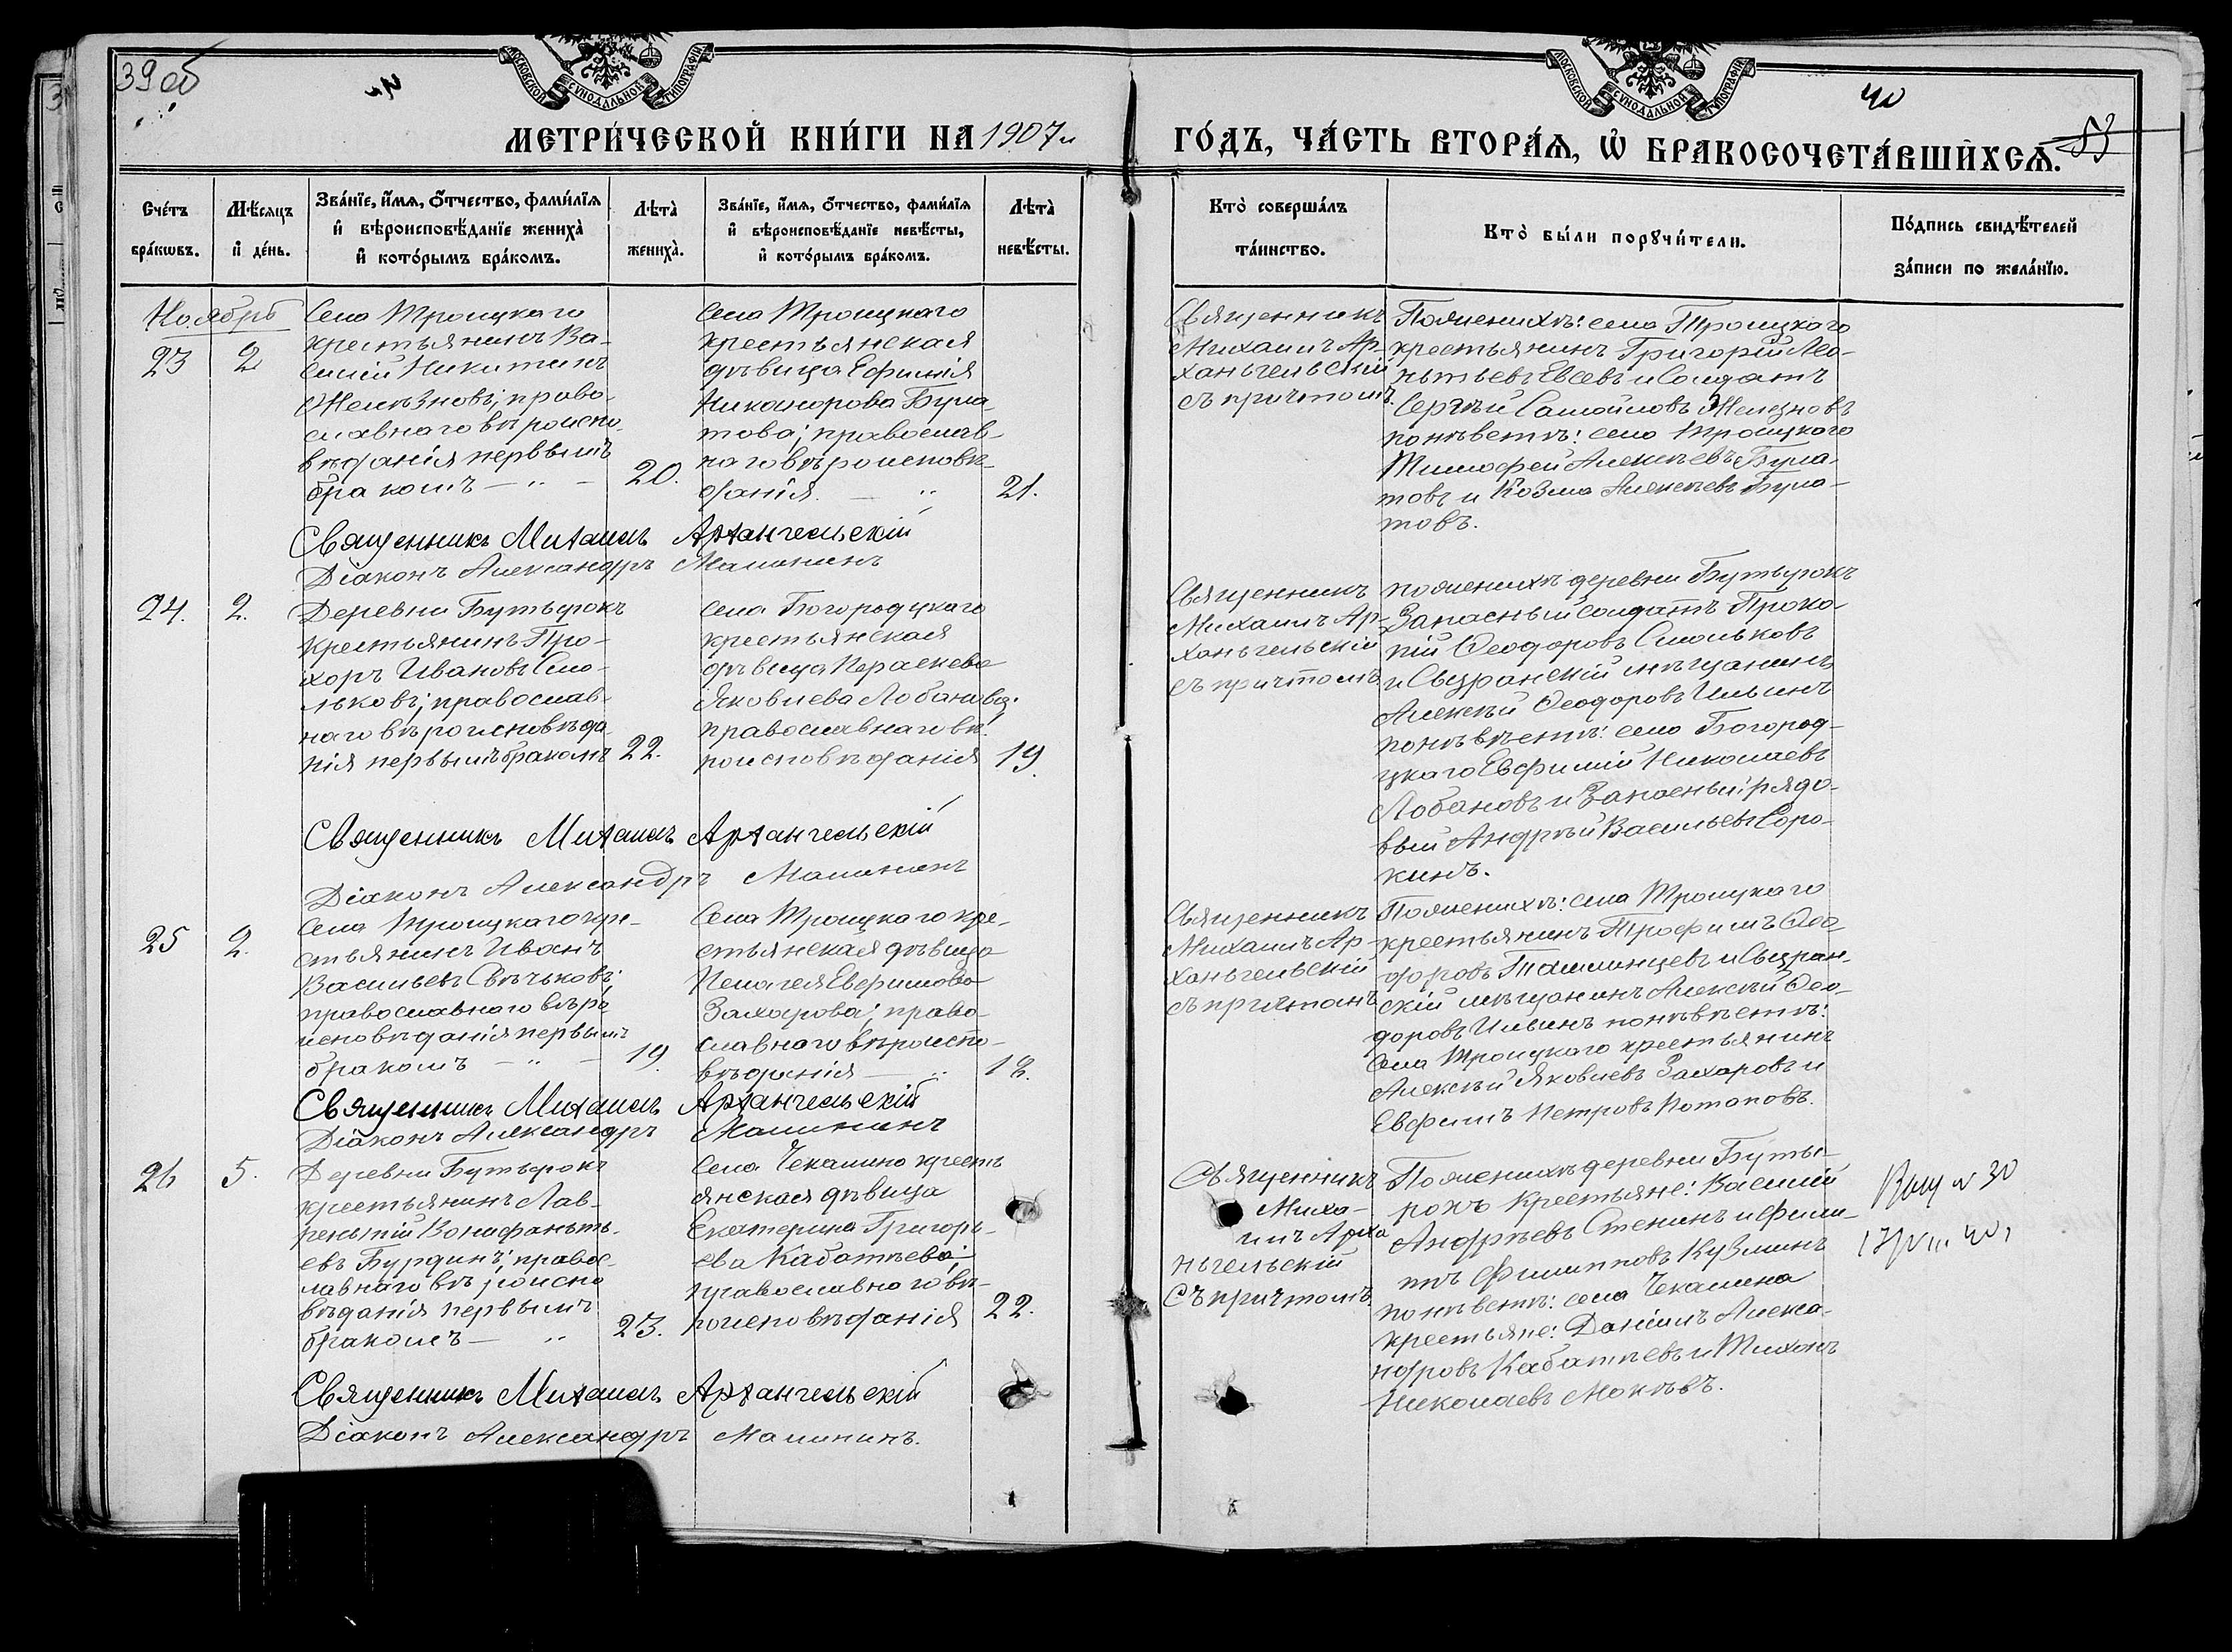 39 об
40
МОСКОВСКОЙ СѴНОДАЛЬНОЙ ТИПОГРАФІИ
МОСКОВСКОЙ СѴНОДАЛЬНОЙ ТИПОГРАФІИ
53
МЕТРИ́ЧЕСКОЙ КНИ́ГИ НА 1907 и
ГО́ДЪ, ЧА́СТЬ ВТОРА́Ѧ, Ѡ҆ БРАКОСОЧЕТА́ВШИХСѦ.
Сче́тъ бра́кѡвъ.
Мѣ́сѧцъ и҆ де́нь.
Зва́нїе, и҆́мѧ, ѻ҆́тчество, фами́лїѧ и҆ вѣроисповѣ́данїе жениха̀ и҆ кото́рымъ бра́комъ.
Лѣта̀ жениха̀.
Зва́нїе, и҆́мѧ, ѻ҆́тчество, фами́лїѧ и҆ вѣроисповѣ́данїе невѣ́сты, и҆ кото́рымъ бра́комъ.
Лѣта̀ невѣ́сты.
Кто̀ соверша́лъ та́инство.
Кто̀ бы́ли порꙋчи́тели.
По́дпись свидѣ́телей за́писи по жела́нїю.
Ноябрь
23
2
Села Троицкаго
крестьянинъ Ва-
силій Никитинъ
Желѣзновъ; право-
славнаго вѣроиспо-
вѣданія первымъ
бракомъ — „ —
20.
Села Троицкаго
крестьянская
дѣвица Ефимія
Никанорова Була-
това; православ-
наго вѣроисповѣ-
данія. — „
21.
Священникъ
Михаилъ Ар-
ханьгельскій
съ причтомъ.
По женихѣ: села Троицкаго
крестьянинъ Григорій Лео-
нтьевъ Евсевъ и Солдатъ
Сергѣй Самойловъ Желѣзновъ
по невѣстѣ: села Троицкаго
Тимофей Алексѣевъ Була-
товъ и Козма Алексѣевъ Була-
товъ.
Священникъ Михаилъ Архангельскій
Діаконъ Александръ Малининъ
24.
2.
Деревни Бутырокъ
крестьянинъ Про-
хоръ Ивановъ Смо-
льковъ; православ-
наго вѣроисповѣда
нія первымъ бракомъ
22.
Села Богородцкаго
крестьянская
дѣвица Параскева
Яковлева Лобанова;
православнаго вѣ-
роисповѣданія
19.
Священникъ
Михаилъ Ар-
ханьгельскій
съ причтомъ.
по женихѣ деревни Бутырокъ
Запасный солдатъ Проко-
пій Ѳеодоровъ Смольковъ
и Сызранскій мѣщанинъ
Алексѣй Ѳеодоровъ Ильинъ
по невѣстѣ: села Богород-
цкаго Евфимій Николаевъ
Лобановъ и Запасный рядо-
вый Андрѣй Васильевъ Соро-
кинъ.
Священникъ Михаилъ Архангельскій
Діаконъ Александръ Малининъ
25
2.
Села Троицкаго кре-
стьянинъ Иванъ
Васильевъ Свѣчьковъ;
православнаго вѣро
исповѣданія первымъ
бракомъ — „ —
19.
Села Троицкаго кре-
стьянская дѣвица
Пелагея Евфимова
Захарова; право-
славнаго вѣроиспо-
вѣданія — „
18.
Священникъ
Михаилъ Ар-
ханьгельскій
съ причтомъ
По женихѣ: села Троицкаго
крестьянинъ Трофимъ Ѳео
доровъ Ташлинцевъ и Сызран-
скій мѣщанинъ Алексѣй Ѳео-
доровъ Ильинъ по невѣстѣ:
Села Троицкаго крестьянинъ
Алексѣй Яковлевъ Захаровъ и
Евфимъ Петровъ Потаповъ.
Священникъ Михаилъ Архангельскій
Діаконъ Александръ Малининъ
26
5.
Деревни Бутырокъ
крестьянинъ Лав-
рентій Вонифанть-
евъ Бурдинъ; правос-
лавнаго вѣроиспо
вѣданія первымъ
бракомъ — „
23.
Села Чекалино кресть
янская дѣвица
Екатерина Григорь-
ева Кабатаева;
православнаго вѣ-
роисповѣданія
22.
Священникъ
Миха-
илъ Арха
ньгельскій
Съ причтомъ.
По женихѣ деревни Буты-
рокъ крестьяне: Василій
Андрѣевъ Стенинъ и Фили-
пъ Филипповъ Кузминъ
по невѣстѣ: села Чекалина
крестьяне: Даніилъ Алекса-
ндровъ Кабатаевъ и Тихонъ
Николаевъ Мокѣевъ.
Священникъ Михаилъ Архангельскій
Діаконъ Александръ Малининъ.